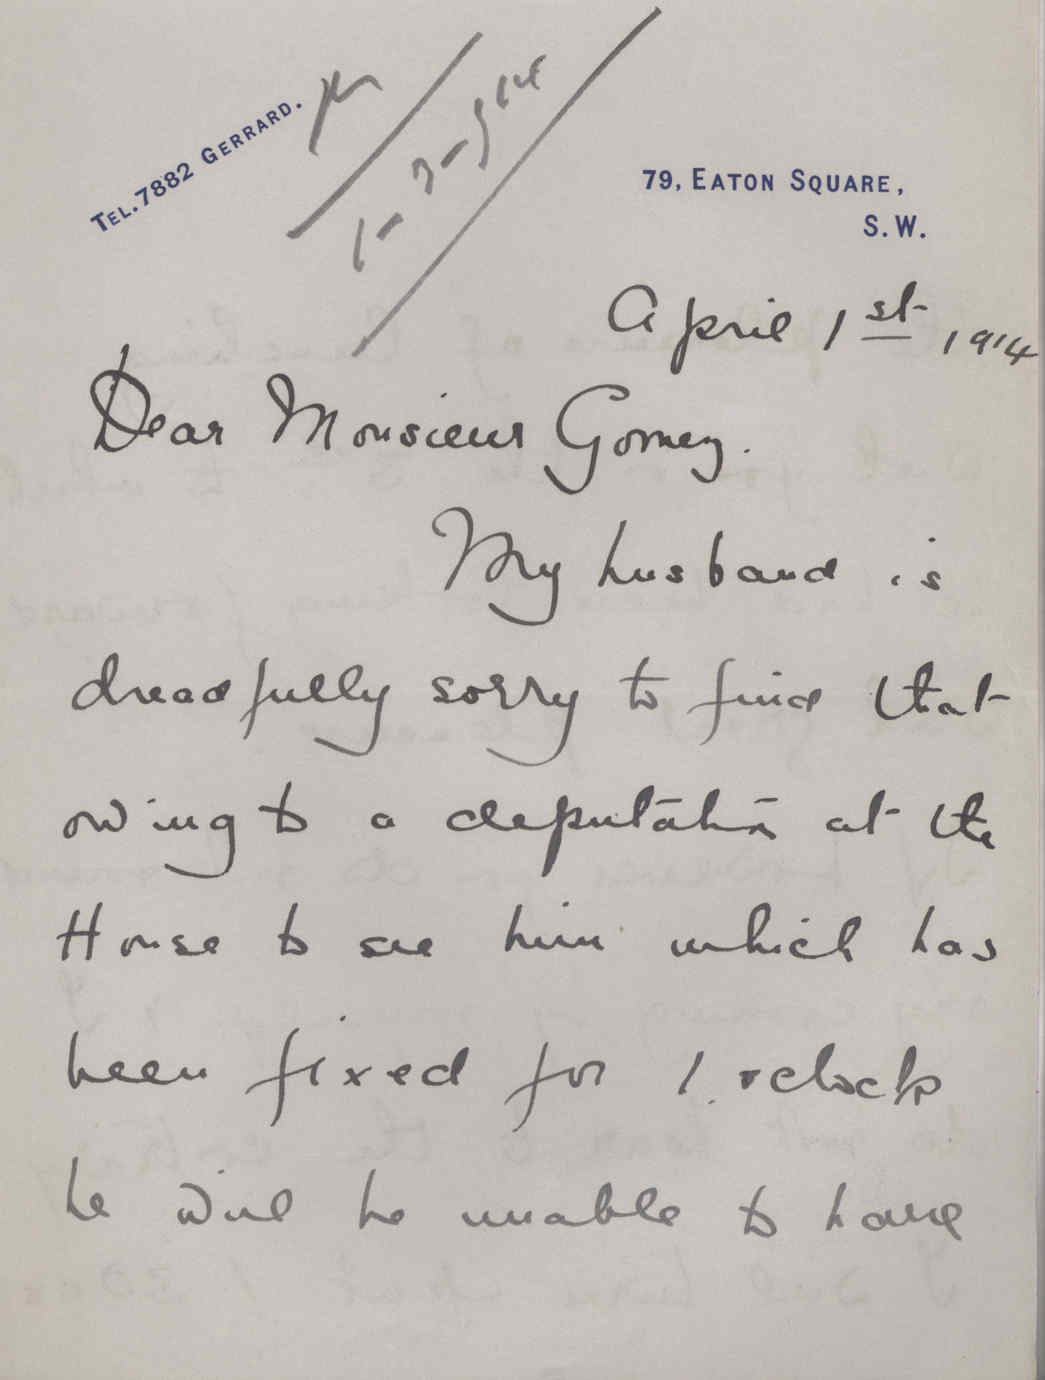 TEL. 7882 GERRARD.
79, EATON SQUARE,
S.W.
April 1st 1914
Dear Monsieur Gomez.
My husband is
dreadfully sorry to find that
owing to a deputation at the
House to see him which has
been fixed for 1. oclock
he will be unable to have